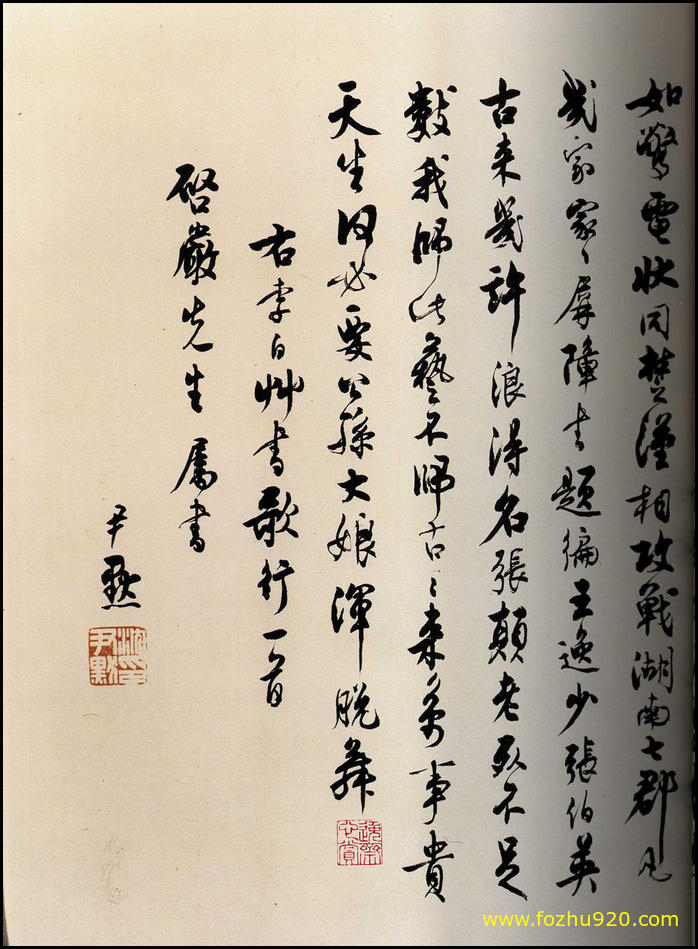 如驚電狀同楚漢相攻戰湖南七郡凡
幾家家〻屏障書題徧王逸少張伯英
古來幾許浪得名張顛老死不足
數我師此藝不師古〻來萬事貴
天生何必要公孫大娘渾脫舞
右李白艸書歌行一首
啓嚴先生屬書
尹默
沈尹默
www.fozhu920.com